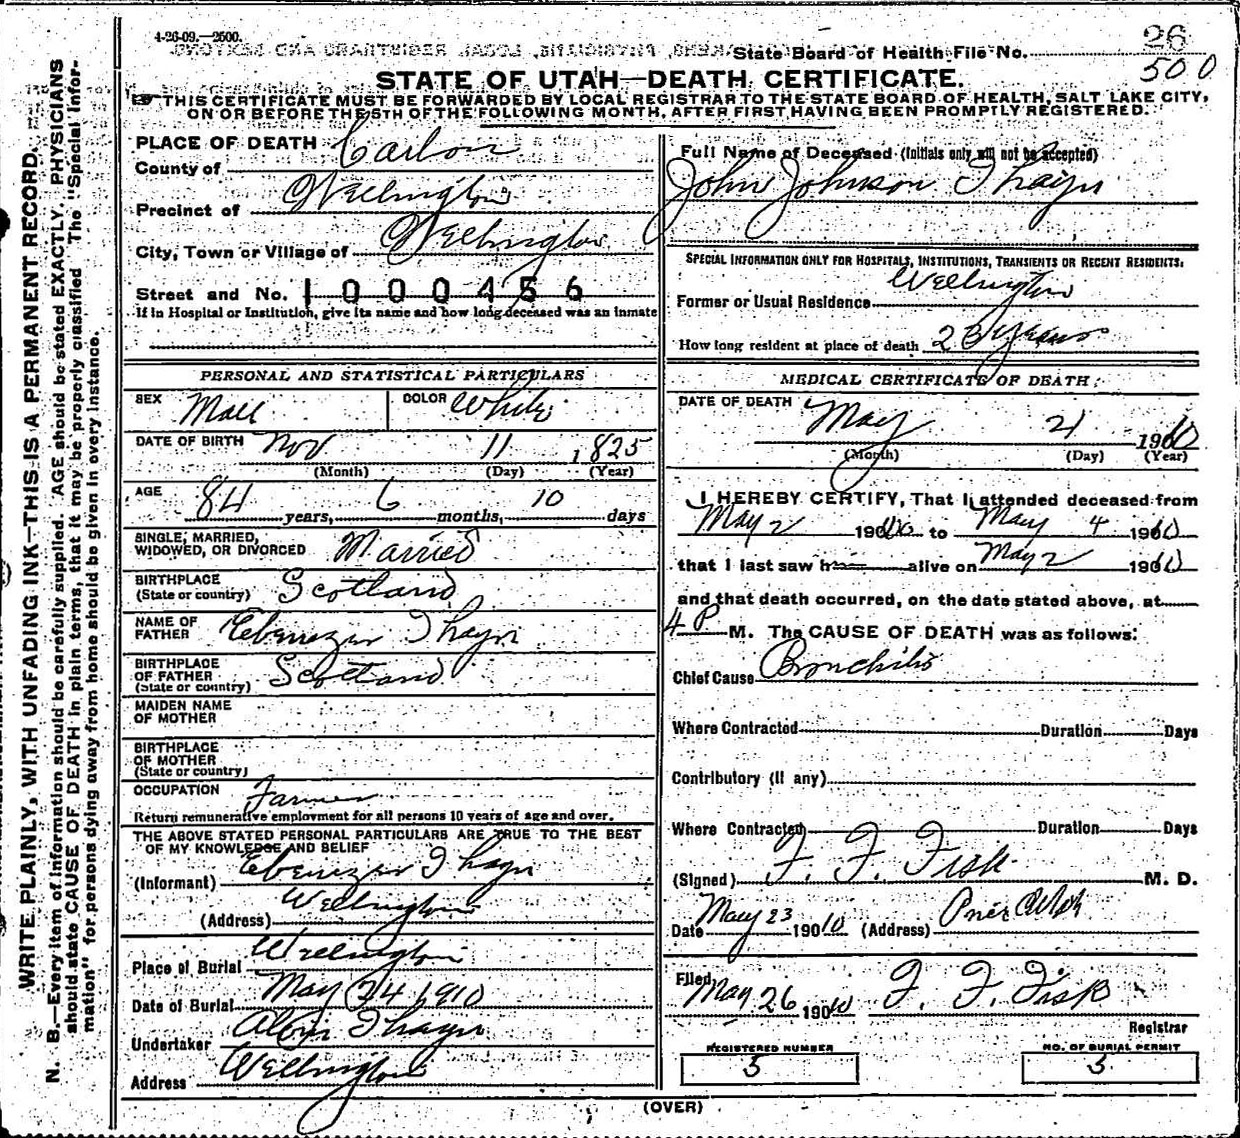 4-26-09.—2500.
State Board of Health File No. 26
500
STATE OF UTAH—DEATH CERTIFICATE.
THIS CERTIFICATE MUST BE FORWARDED BY LOCAL REGISTRAR TO THE STATE BOARD OF HEALTH, SALT LAKE CITY,
ON OR BEFORE THE 5TH OF THE FOLLOWING MONTH, AFTER FIRST HAVING BEEN PROMPTLY REGISTERED.
WRITE PLAINLY, WITH UNFADING INK—THIS IS A PERMANENT RECORD.
N. B.—Every item of information should be carefully supplied. AGE should be stated EXACTLY. PHYSICIANS
should state CAUSE OF DEATH in plain terms, that it may be properly classified. The "Special Infor-
mation" for persons dying away from home should be given in every instance.
PLACE OF DEATH
County of Carbon
Precinct of Wellington
City, Town or Village of Wellington
Street and No. 1000456
If in Hospital or Institution, give its name and how long deceased was an inmate
PERSONAL AND STATISTICAL PARTICULARS
SEX Male COLOR White
DATE OF BIRTH Nov 11 1825
(Month) (Day) (Year)
AGE 84 years, 6 months, 10 days
SINGLE, MARRIED,
WIDOWED, OR DIVORCED Married
BIRTHPLACE
(State or country) Scotland
NAME OF
FATHER Ebenezer Thayn
BIRTHPLACE
OF FATHER
(State or country) Scotland
MAIDEN NAME
OF MOTHER
BIRTHPLACE
OF MOTHER
(State or country)
OCCUPATION Farmer
Return remunerative employment for all persons 10 years of age and over.
THE ABOVE STATED PERSONAL PARTICULARS ARE TRUE TO THE BEST
OF MY KNOWLEDGE AND BELIEF
(Informant) Ebenezer Thayn
(Address) Wellington
Place of Burial Wellington
Date of Burial May 24 1910
Undertaker Thayn
Address Wellington
Full Name of Deceased (Initials only will not be accepted)
John Johnson Thayn
SPECIAL INFORMATION ONLY FOR HOSPITALS, INSTITUTIONS, TRANSIENTS OR RECENT RESIDENTS:
Former or Usual Residence Wellington
How long resident at place of death 23 years
MEDICAL CERTIFICATE OF DEATH
DATE OF DEATH
May 21 1910
(Month) (Day) (Year)
I HEREBY CERTIFY, That I attended deceased from
May 2 1910 to May 4 1910
that I last saw h alive on May 2 1910
and that death occurred, on the date stated above, at
4 P M. The CAUSE OF DEATH was as follows:
Chief Cause Bronchitis
Where Contracted Duration Days
Contributory (if any)
Where Contracted Duration Days
(Signed) F. F. Fisk M. D.
Date May 23 1910 (Address)
Filed May 26 1910 F. F. Fisk
Registrar
REGISTERED NUMBER
5
NO. OF BURIAL PERMIT
5
(OVER)